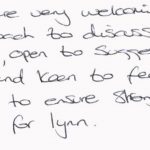 very welcoming
to discuss
, open to sugges
and keen to fee
to ensure stron
for Lynn.